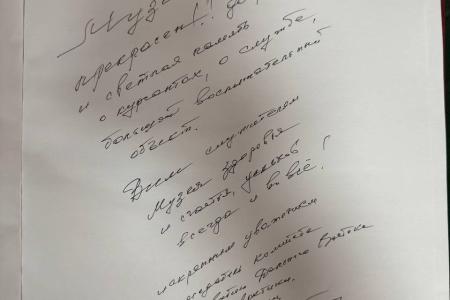 Музе
прекрасен!! до
и светлая память
о курсантах, о службе,
большой воспитательный
объект.
Всем служителям
Музея здоровья
и счастья, успехов
всегда и во всё!
искренним уважением
комитета
Войска